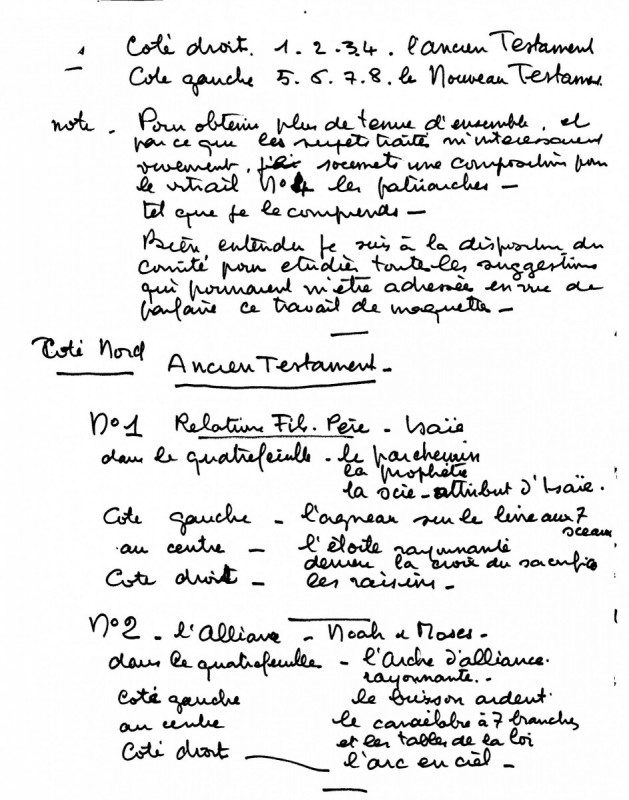 Coté droit. 1. 2. 3. 4. l'ancien Testament
Cote gauche 5. 6. 7. 8. le Nouveau Testamen
note - Pour obtenir plus de tenue d'ensemble, et
par ce que les sujets traités m'interessaient
vivement, j'ai soumets une composition pour
le vitrail No 4 les patriarches -
tel que je le comprends -
Bien entendu je suis à la disposition du
Comité pour etudier toutes les suggestions
qui pourraient m'être adressées en vue de
parfaire ce travail de maquette -
Coté Nord Ancien Testament -
No 1 Relations Fils. Père - Isaïe
dans le quatrefeuille - le parchemin
la prophète
la scie - attribut d'Isaïe.
Cote gauche - l'agneau sur le livre aux 7
sceaux
au centre - l'étoile rayonnante
dessus la croix du sacrifice
Cote droit - les raisins -
No 2 - l'Alliance - Noah & Moses -
dans le quatrefeuille - l'Arche d'alliance.
rayonnante. -
Coté gauche le buisson ardent
au centre le candélabre à 7 branches
et les tables de la loi
Coté droit l'arc en ciel -